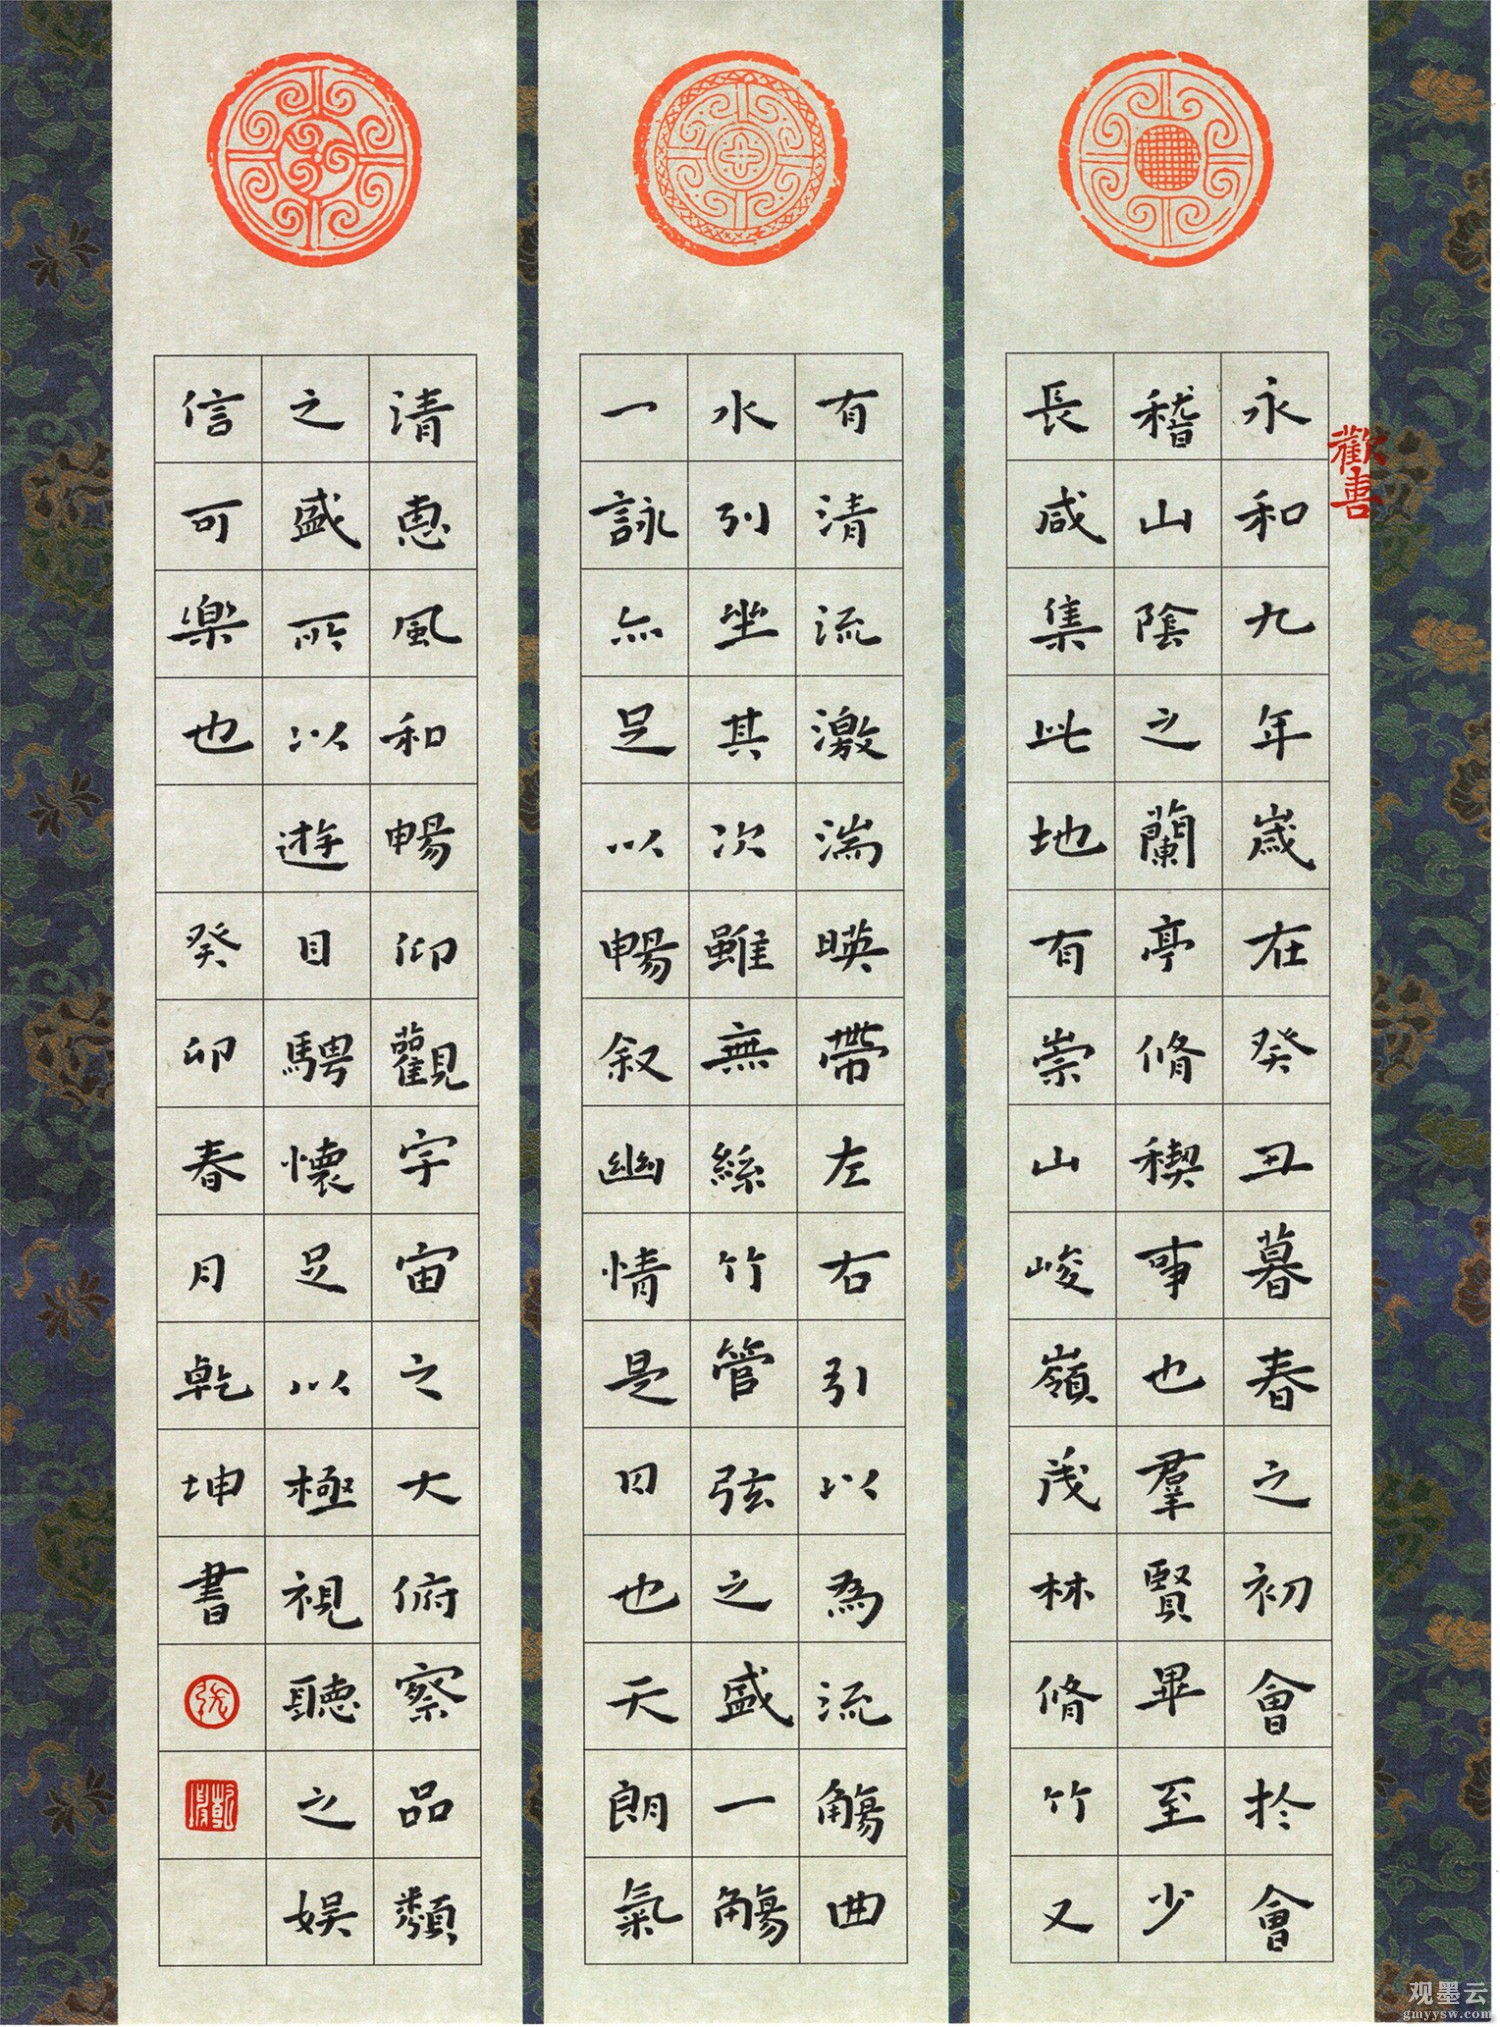 永和九年歲在癸丑暮春之初會於會
稽山陰之蘭亭脩稧事也羣賢畢至少
長咸集此地有崇山峻嶺茂林脩竹又
有清流激湍暎帶左右引以為流觴曲
水列坐其次雖無絲竹管弦之盛一觴
一詠亦足以暢叙幽情是日也天朗氣
清惠風和暢仰觀宇宙之大俯察品類
之盛所以遊目騁懷足以極視聽之娛
信可樂也 癸卯春月乾坤書
歡喜
观墨云
gmyysw.com